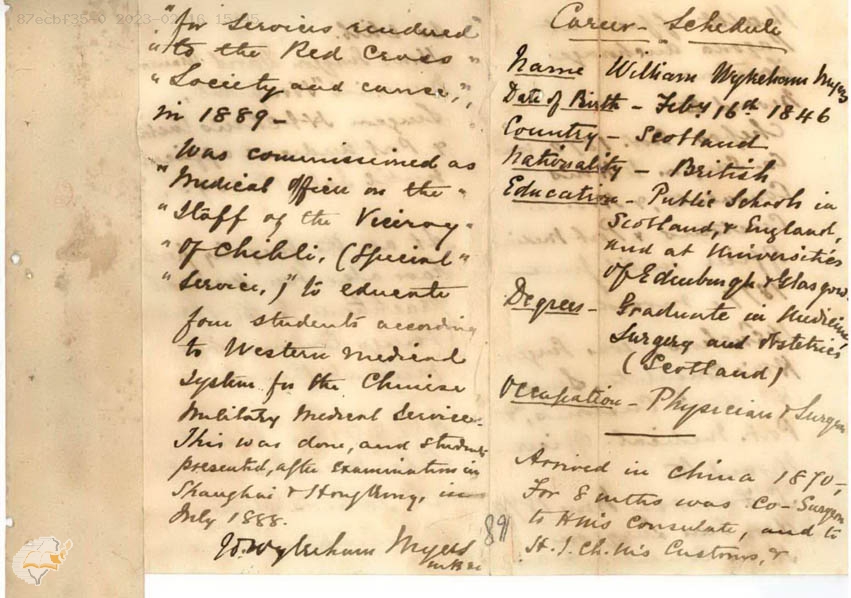 "for services rendered"
"to the Red Cross"
"Society and cause,",
in 1889 –
Was commissioned as
"Medical Officer on the"
"Staff of the Viceroy"
"of Chihli, (Special"
"Service,)" to educate
four students according
to Western Medical
System for the Chinese
Military Medical Service.
This was done, and students
presented, after examination in
Shanghai & Hong Kong, in
July 1888.
W. Wykeham Myers
M.B. &c
Career – Schedule
Name William Wykeham Myers
Date of Birth – Feby. 16th 1846
Country – Scotland
Nationality – British
Education – Public Schools in
Scotland, & England,
and at Universities
of Edinburgh & Glasgow
Degrees – Graduate in Medicine,
Surgery and Obstetrics
(Scotland)
Occupation – Physician & Surgeon
Arrived in China 1870,
For 8 mths was Co-Surgeon
to HM's Consulate, and to
H. I. Ch. M's Customs, &